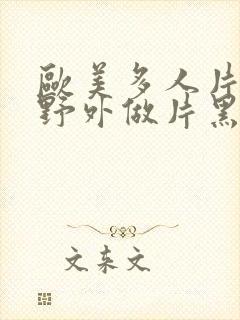 歐美多人片
野外做片黑
文东文